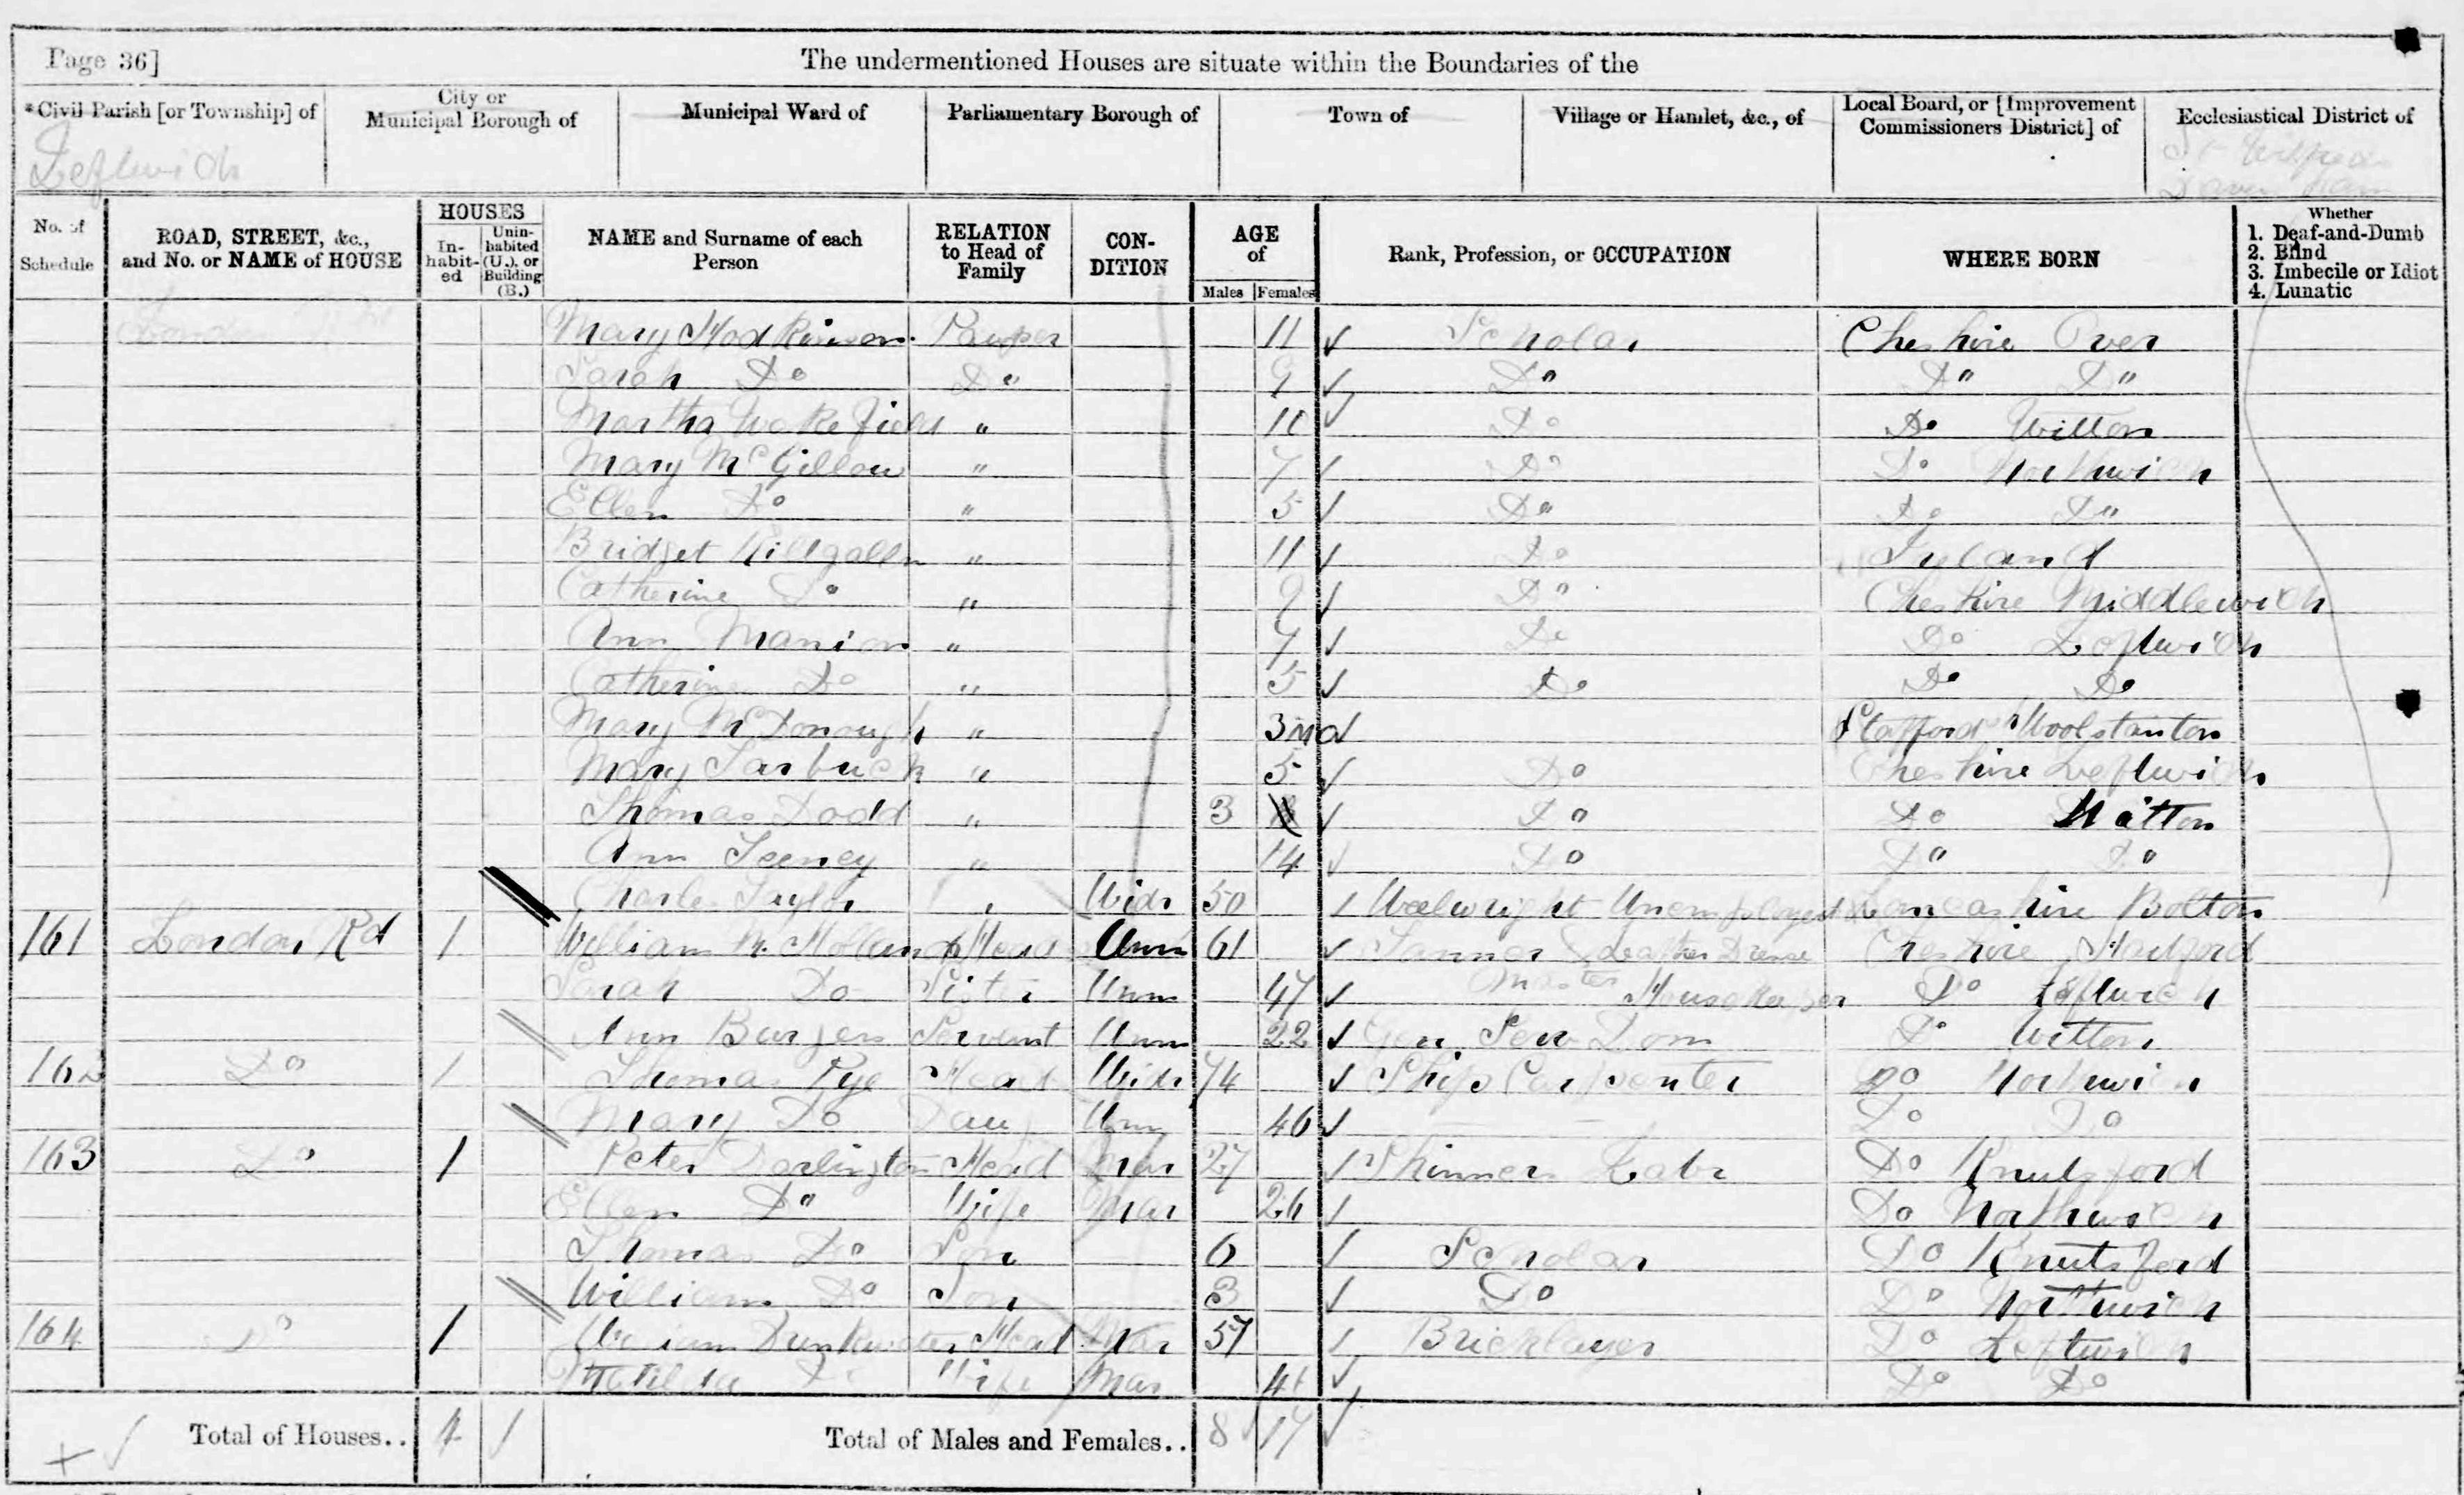 Page 36]
The undermentioned Houses are situate within the Boundaries of the
*Civil Parish [or Township] of
City or Municipal Borough of
Municipal Ward of
Parliamentary Borough of
Town of
Village or Hamlet, &c., of
Local Board, or [Improvement Commissioners District] of
Ecclesiastical District of
Leftwich
St Wilfreds
Davenham
No. of Schedule
ROAD, STREET, &c., and No. or NAME of HOUSE
HOUSES
In-habit-ed
Unin-habited (U.), or Building (B.)
NAME and Surname of each Person
RELATION to Head of Family
CON-DITION
AGE of
Males Females
Rank, Profession, or OCCUPATION
WHERE BORN
Whether
1. Deaf-and-Dumb
2. Blind
3. Imbecile or Idiot
4. Lunatic
London Mary Hodkinson Pauper 11 Scholar Cheshire Over
Sarah Do Do 9 Do Do Do
Martha Wakefield " Do Do Witton
Mary McGillow " 7 Do Do Northwich
Ellen Do " 5 Do Do Do
Bridget Killgalln " 11 Do Ireland
Catherine Do " 9 Do Cheshire Middlewich
Ann Manion " 7 Do Do Leftwich
Catherine Do " 5 Do Do Do
Mary McDonough " 3 Stafford Woolstanton
Mary Tarbuck " 5 Do Cheshire Leftwich
Thomas Dodd " 3 Do Do Witton
Ann Feeney " 14 Do Do Do
Charles Taylor " Widr 50 Weelwright Unemployed Lancashire Bolton
161 London Rd 1 William Holland Head Unm 61 Tanner & Leather Dresser Cheshire Hartford
Master
Sarah Do Sister Unm 47 Housekeeper Do Leftwich
Ann Burgess Servent Unm 22 Gen Serv Dom Do Witton
162 Do 1 Thomas Pye Head Widr 74 Ship Carpenter Do Northwich
Mary Do Dau Unm 46 Do Do
163 Do 1 Peter Darlington Head Mar 27 Skinners Labr Do Knutsford
Ellen Do Wife Mar 26 Do Northwich
Thomas Do Son 6 Scholar Do Knutsford
William Do Son 3 Do Do Northwich
164 Do 1 William Head Mar 57 Bricklayer Do Leftwich
Matilda Do Wife Mar Do Do
Total of Houses.. 4 1 Total of Males and Females.. 8 17